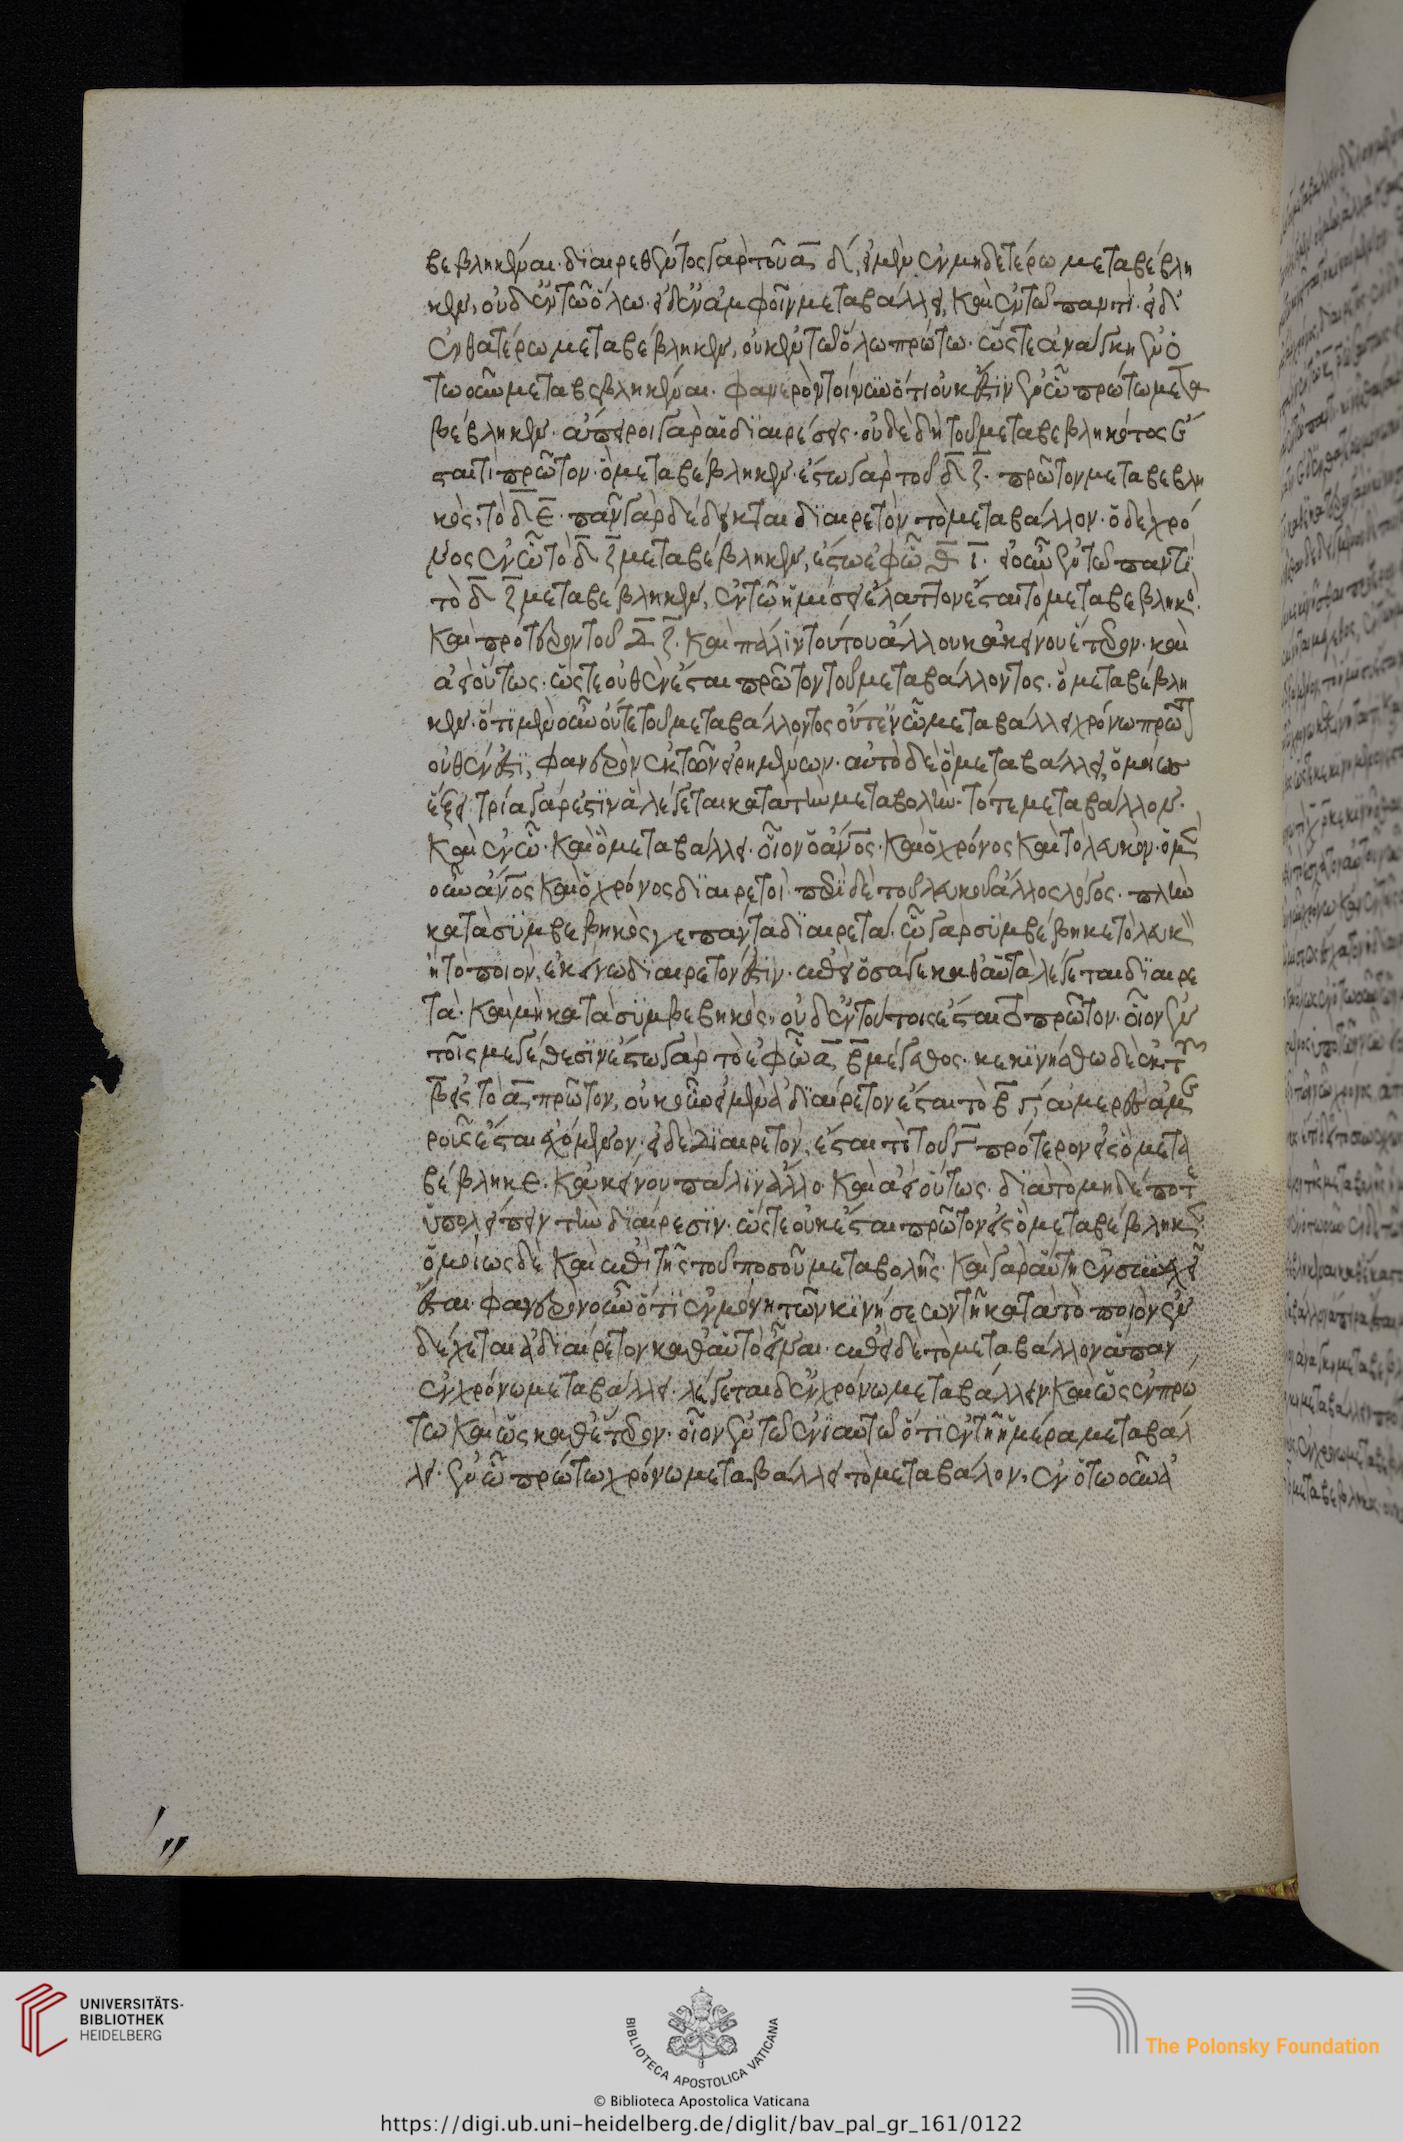 βεβληκέναι· διαιρεθέντος γὰρ τοῦ α̅ δ̅, εἰ μὲν ἐν μηδετέρω μεταβέβλη
κεν, οὐδ' ἐν τῶ ὅλω· εἰ δ' ἐν ἀμφοῖν μεταβάλλει, καὶ ἐν τῶ παντί· εἰ δ'
ἐν θατέρω μεταβέβληκεν, οὐκ ἐν τῶ ὅλω πρώτω· ὥστε ἀνάγκη ἐν ὁ
τωοῦν μεταβεβληκέναι· φανερὸν τοίνυν ὅτι οὐκ ἔστιν ἐν ὧ πρώτω μετα
βέβληκεν· ἄπειροι γὰρ αἱ διαιρέσεις· οὐδὲ δὴ τοῦ μεταβεβληκότος ἔ
σται τὶ πρῶτον· ὃ μεταβέβληκεν· ἔστω γὰρ τοῦ δ̅ ζ̅· πρῶτον μεταβεβλη
κὸς, τὸ δ̅ ε̅· πᾶν γὰρ δέδεικται διαιρετὸν τὸ μεταβάλλον· ὁ δὲ χρό
νος ἐν ὧ τὸ δ̅ ζ̅ μεταβέβληκεν, ἔστω ἐφ' ὧ θ̅ ι̅· εἰ οὖν ἐν τῶ παντὶ
τὸ δ̅ ζ̅ μεταβέβληκεν, ἐν τῶ ἡμίσει ἔλαττον ἔσται τὸ μεταβεβληκὸ·
καὶ πρότερον τοῦ δ̅ ζ̅· καὶ πάλιν τούτου ἄλλου κἀκείνου ἕτερον· καὶ
ἀεὶ οὕτως· ὥστε οὐθὲν ἔσται πρῶτον τοῦ μεταβάλλοντος· ὃ μεταβέβλη
κεν· ὅτι μὲν οὖν οὔτε τοῦ μεταβάλλοντος οὔτ' ἐν ὧ μεταβάλλει χρόνω πρῶτ
οὐθέν ἐστι, φανερὸν ἐκ τῶν εἰρημένων· αὐτὸ δὲ ὃ μεταβάλλει, ὁμοίως
ἕξει· τρία γάρ ἐστιν ἃ λέγεται κατὰ τὴν μεταβολὴν· τό τε μεταβάλλον·
καὶ ἐν ὧ· καὶ ὃ μεταβάλλει· οἷον ὁ ἄνος· καὶ ὁ χρόνος καὶ τὸ λευκόν· ὁ μὲν
οὖν ἄνος καὶ ὁ χρόνος διαιρετοί· περὶ δὲ τοῦ λευκοῦ ἄλλος λόγος· πλὴν
κατὰ συμβεβηκός γε πάντα διαιρετά· ὧ γὰρ συμβέβηκε τὸ λευκ
ἢ τὸ ποιὸν, ἐκεῖνο διαιρετόν ἐστιν· ἐπεὶ ὅσα γε καθ' αὑτὰ λέγεται διαιρε
τὰ· καὶ μὴ κατὰ συμβεβηκός, οὐδ' ἐν τούτοις ἔσται τὸ πρῶτον· οἷον ἐν
τοῖς μεγέθεσιν ἔστω γὰρ τὸ ἐφ' ὧ α̅ β̅ μέγεθος· κεκινήσθω δὲ ἐκ τοῦ
β̅ εἰς τὸ α̅ πρῶτον, οὐκοῦν εἰ μὲν ἀδιαίρετον ἔσται τὸ β̅ γ̅, ἀμερὲς ἀμε
ροῦς ἔσται ἐχόμενον· εἰ δὲ διαιρετὸν, ἔσται τὶ τοῦ γ̅ πρότερον εἰς ὃ μετα
βέβληκε· κἀκείνου πάλιν ἄλλο· καὶ ἀεὶ οὕτως· διὰ τὸ μηδέποτε
ὑπολείπειν τὴν διαίρεσιν· ὥστε οὐκ ἔσται πρῶτον εἰς ὃ μεταβέβληκε·
ὁμοίως δὲ καὶ ἐπὶ τῆς τοῦ ποσοῦ μεταβολῆς· καὶ γὰρ αὕτη ἐν συνεχεῖ
ἐσται· φανερὸν οὖν ὅτι ἐν μόνη τῶν κινήσεων τῆ κατὰ τὸ ποιὸν ἐν
δέχεται ἀδιαίρετον καθ' αὑτὸ εἶναι· ἐπεὶ δὲ τὸ μεταβάλλον ἅπαν
ἐν χρόνω μεταβάλλει· λέγεται δ' ἐν χρόνω μεταβάλλειν καὶ ὡς ἐν πρώ
τω καὶ ὡς καθ' ἕτερον· οἷον ἐν τῶ ἐνιαυτῶ ὅτι ἐν τῆ ἡμέρα μεταβάλ
λει· ἐν ὧ πρώτω χρόνω μεταβάλλει τὸ μεταβάλον, ἐν ὁτωοῦν ἀ
UNIVERSITÄTS-
BIBLIOTHEK
HEIDELBERG
BIBLIOTECA APOSTOLICA VATICANA
The Polonsky Foundation
© Biblioteca Apostolica Vaticana
https://digi.ub.uni-heidelberg.de/diglit/bav_pal_gr_161/0122